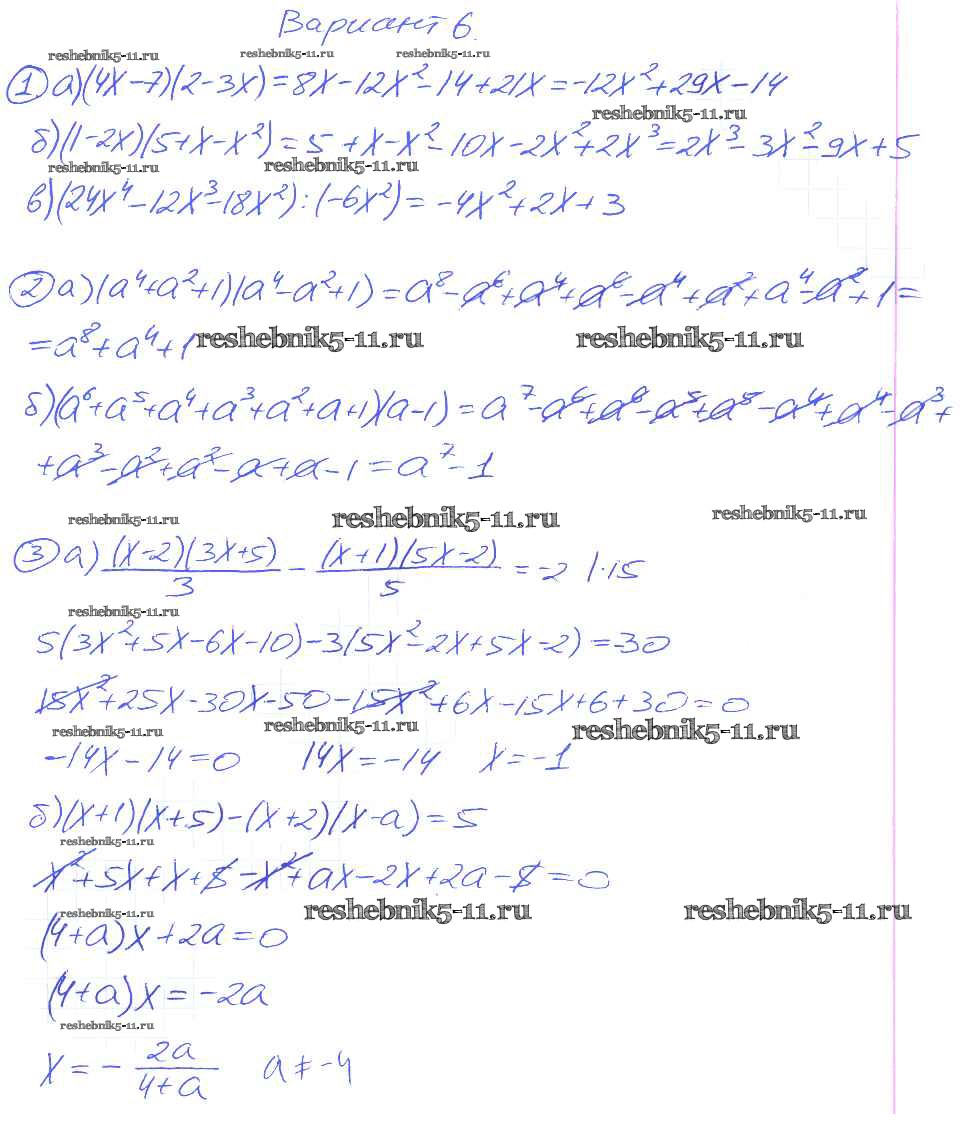 Вариант 6.
reshebnik5-11.ru reshebnik5-11.ru reshebnik5-11.ru
① а)(4x-7)(2-3x)=8x-12x²-14+21x=-12x²+29x-14
reshebnik5-11.ru
б)(1-2x)(5+x-x²)=5+x-x²-10x-2x²+2x³=2x³-3x²-9x+5
reshebnik5-11.ru reshebnik5-11.ru
в)(24x⁴-12x³-18x²):(-6x²)=-4x²+2x+3
② а)(a⁴+a²+1)(a⁴-a²+1)=a⁸-a⁶+a⁴+a⁶-a⁴+a²+a⁴-a²+1=
=a⁸+a⁴+1 reshebnik5-11.ru reshebnik5-11.ru
б)(a⁶+a⁵+a⁴+a³+a²+a+1)(a-1)=a⁷-a⁶+a⁶-a⁵+a⁵-a⁴+a⁴-a³+
+a³-a²+a²-a+a-1=a⁷-1
reshebnik5-11.ru reshebnik5-11.ru reshebnik5-11.ru
③ а) (x-2)(3x+5)/3 - (x+1)(5x-2)/5 =-2 |·15
reshebnik5-11.ru
5(3x²+5x-6x-10)-3(5x²-2x+5x-2)=-30
15x²+25x-30x-50-15x²+6x-15x+6+30=0
reshebnik5-11.ru reshebnik5-11.ru reshebnik5-11.ru
-14x-14=0 14x=-14 x=-1
б)(x+1)(x+5)-(x+2)(x-a)=5
reshebnik5-11.ru
x²+5x+x+5-x²+ax-2x+2a-5=0
reshebnik5-11.ru reshebnik5-11.ru reshebnik5-11.ru
(4+a)x+2a=0
(4+a)x=-2a
reshebnik5-11.ru
x=- 2a/4+a a≠-4